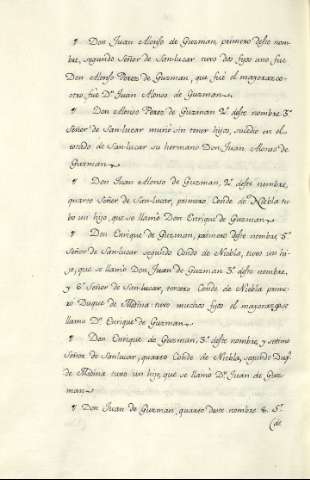 ¶ Don Juan Alonso de Guzman, primero deste nom-
bre, segundo Señor de Sanlucar tuvo dos fijos uno fue
Don Alonso Perez de Guzman, que fué el mayorazgo
otro fue Dn Juan Alonso de Guzman.
¶ Don Alonso Perez de Guzman 2º deste nombre 3º
Señor de Sanlucar murió sin tener hijos, sucedio en el
estado de Sanlucar su hermano Don Juan Alonso de
Guzman.
¶ Don Juan Alonso de Guzman, 2º deste nombre,
quarto Señor de Sanlucar, primero Conde de Niebla tu-
bo un hijo, que se llamó Don Enrique de Guzman
¶ Don Enrique de Guzman, primero deste nombre, 5º
Señor de Sanlucar segundo Conde de Niebla, tuvo un hi-
jo, que se llamó Don Juan de Guzman 3º deste nombre,
y 6º Señor de Sanlucar, tercero Conde de Niebla prime-
ro Duque de Medina: tuvo muchos fijos el mayorazgo se
llamo Dn Enrique de Guzman
¶ Don Enrique de Guzman, 2º deste nombre, y setimo
Señor de Sanlucar, quarto Conde de Niebla, segundo Duqe
de Medina tuvo un hijo, que se llamó Dn Juan de Guz-
man
¶ Don Juan de Guzman, quarto deste nombre 8. Sr
(de